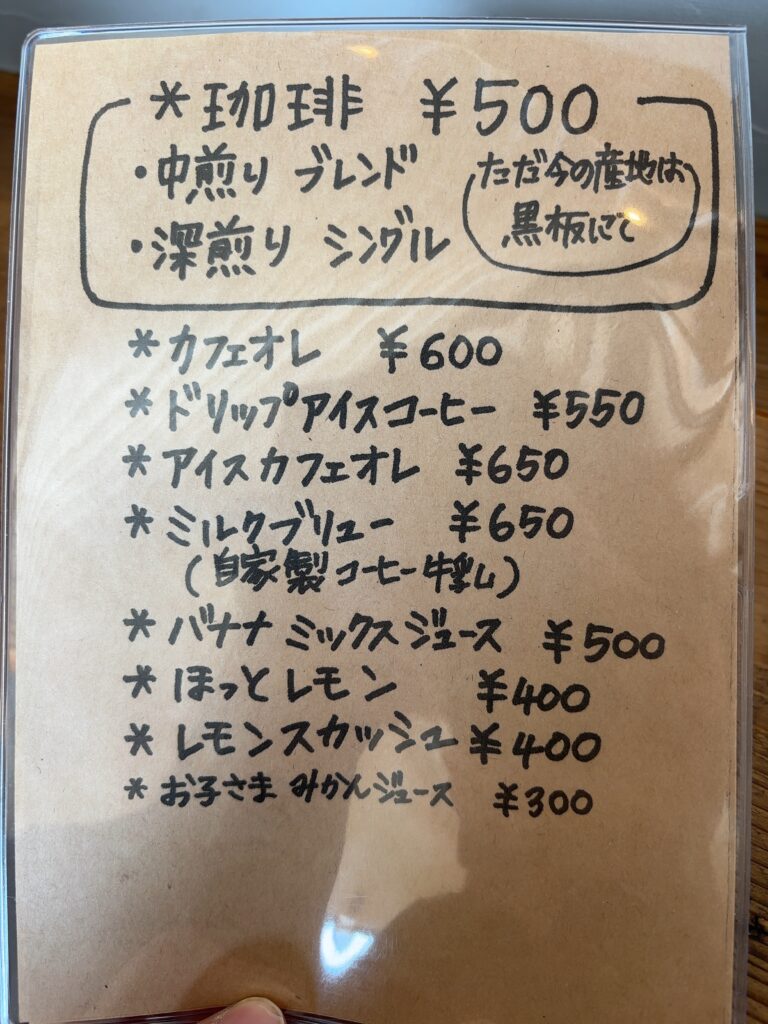 *珈琲 ¥500
・中煎り ブレンド
・深煎り シングル
ただ今の産地は
黒板にて
*カフェオレ ¥600
*ドリップアイスコーヒー ¥550
*アイスカフェオレ ¥650
*ミルクブリュー ¥650
(自家製コーヒー牛乳)
*バナナミックスジュース ¥500
*ほっとレモン ¥400
*レモンスカッシュ ¥400
*お子さまみかんジュース ¥300